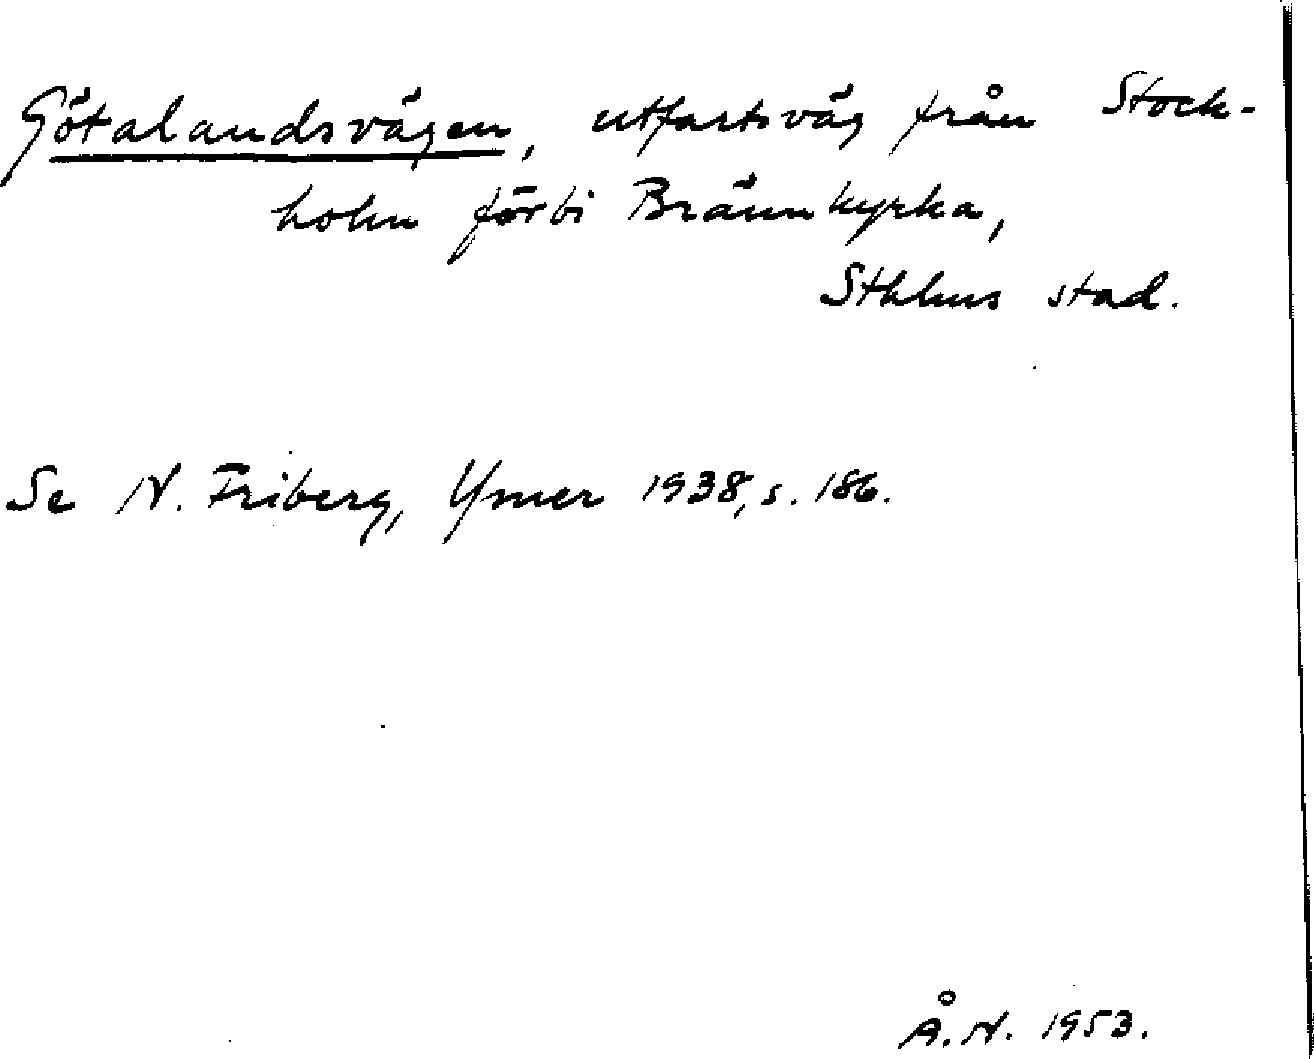 Götalandsvägen, utfartsväg från Stock-
holm förbi Brännkyrka,
Sthlms stad.
Se N. Friberg, Ymer 1938, s. 186.
Å. N. 1953.